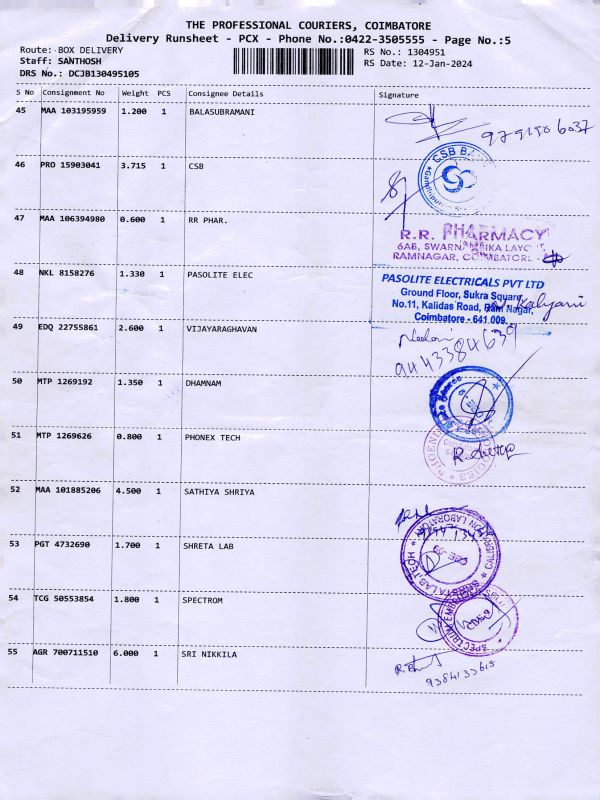 THE PROFESSIONAL COURIERS, COIMBATORE
Delivery Runsheet - PCX - Phone No.:0422-3505555 - Page No.:5
Route: BOX DELIVERY
RS No.: 1304951
Staff: SANTHOSH
RS Date: 12-Jan-2024
DRS No.: DCJB130495105
S No Consignment No Weight PCS Consignee Details Signature
45 MAA 103195959 1.200 1 BALASUBRAMANI
46 PRO 15903041 3.715 1 CSB
CSB BANK
47 MAA 106394980 0.600 1 RR PHAR.
R.R. PHARMACY
6AB, SWARNAMBIKA LAYOUT,
RAMNAGAR, COIMBATORE -
48 NKL 8158276 1.330 1 PASOLITE ELEC
PASOLITE ELECTRICALS PVT LTD
Ground Floor, Sukra Square,
No.11, Kalidas Road, Ram Nagar,
Coimbatore - 641 009.
Kalyani
49 EDQ 22755861 2.600 1 VIJAYARAGHAVAN
9443384639
50 MTP 1269192 1.350 1 DHAMNAM
51 MTP 1269626 0.800 1 PHONEX TECH
52 MAA 101885206 4.500 1 SATHIYA SHRIYA
53 PGT 4732690 1.700 1 SHRETA LAB
54 TCG 50553854 1.800 1 SPECTROM
55 AGR 700711510 6.000 1 SRI NIKKILA
9384133615